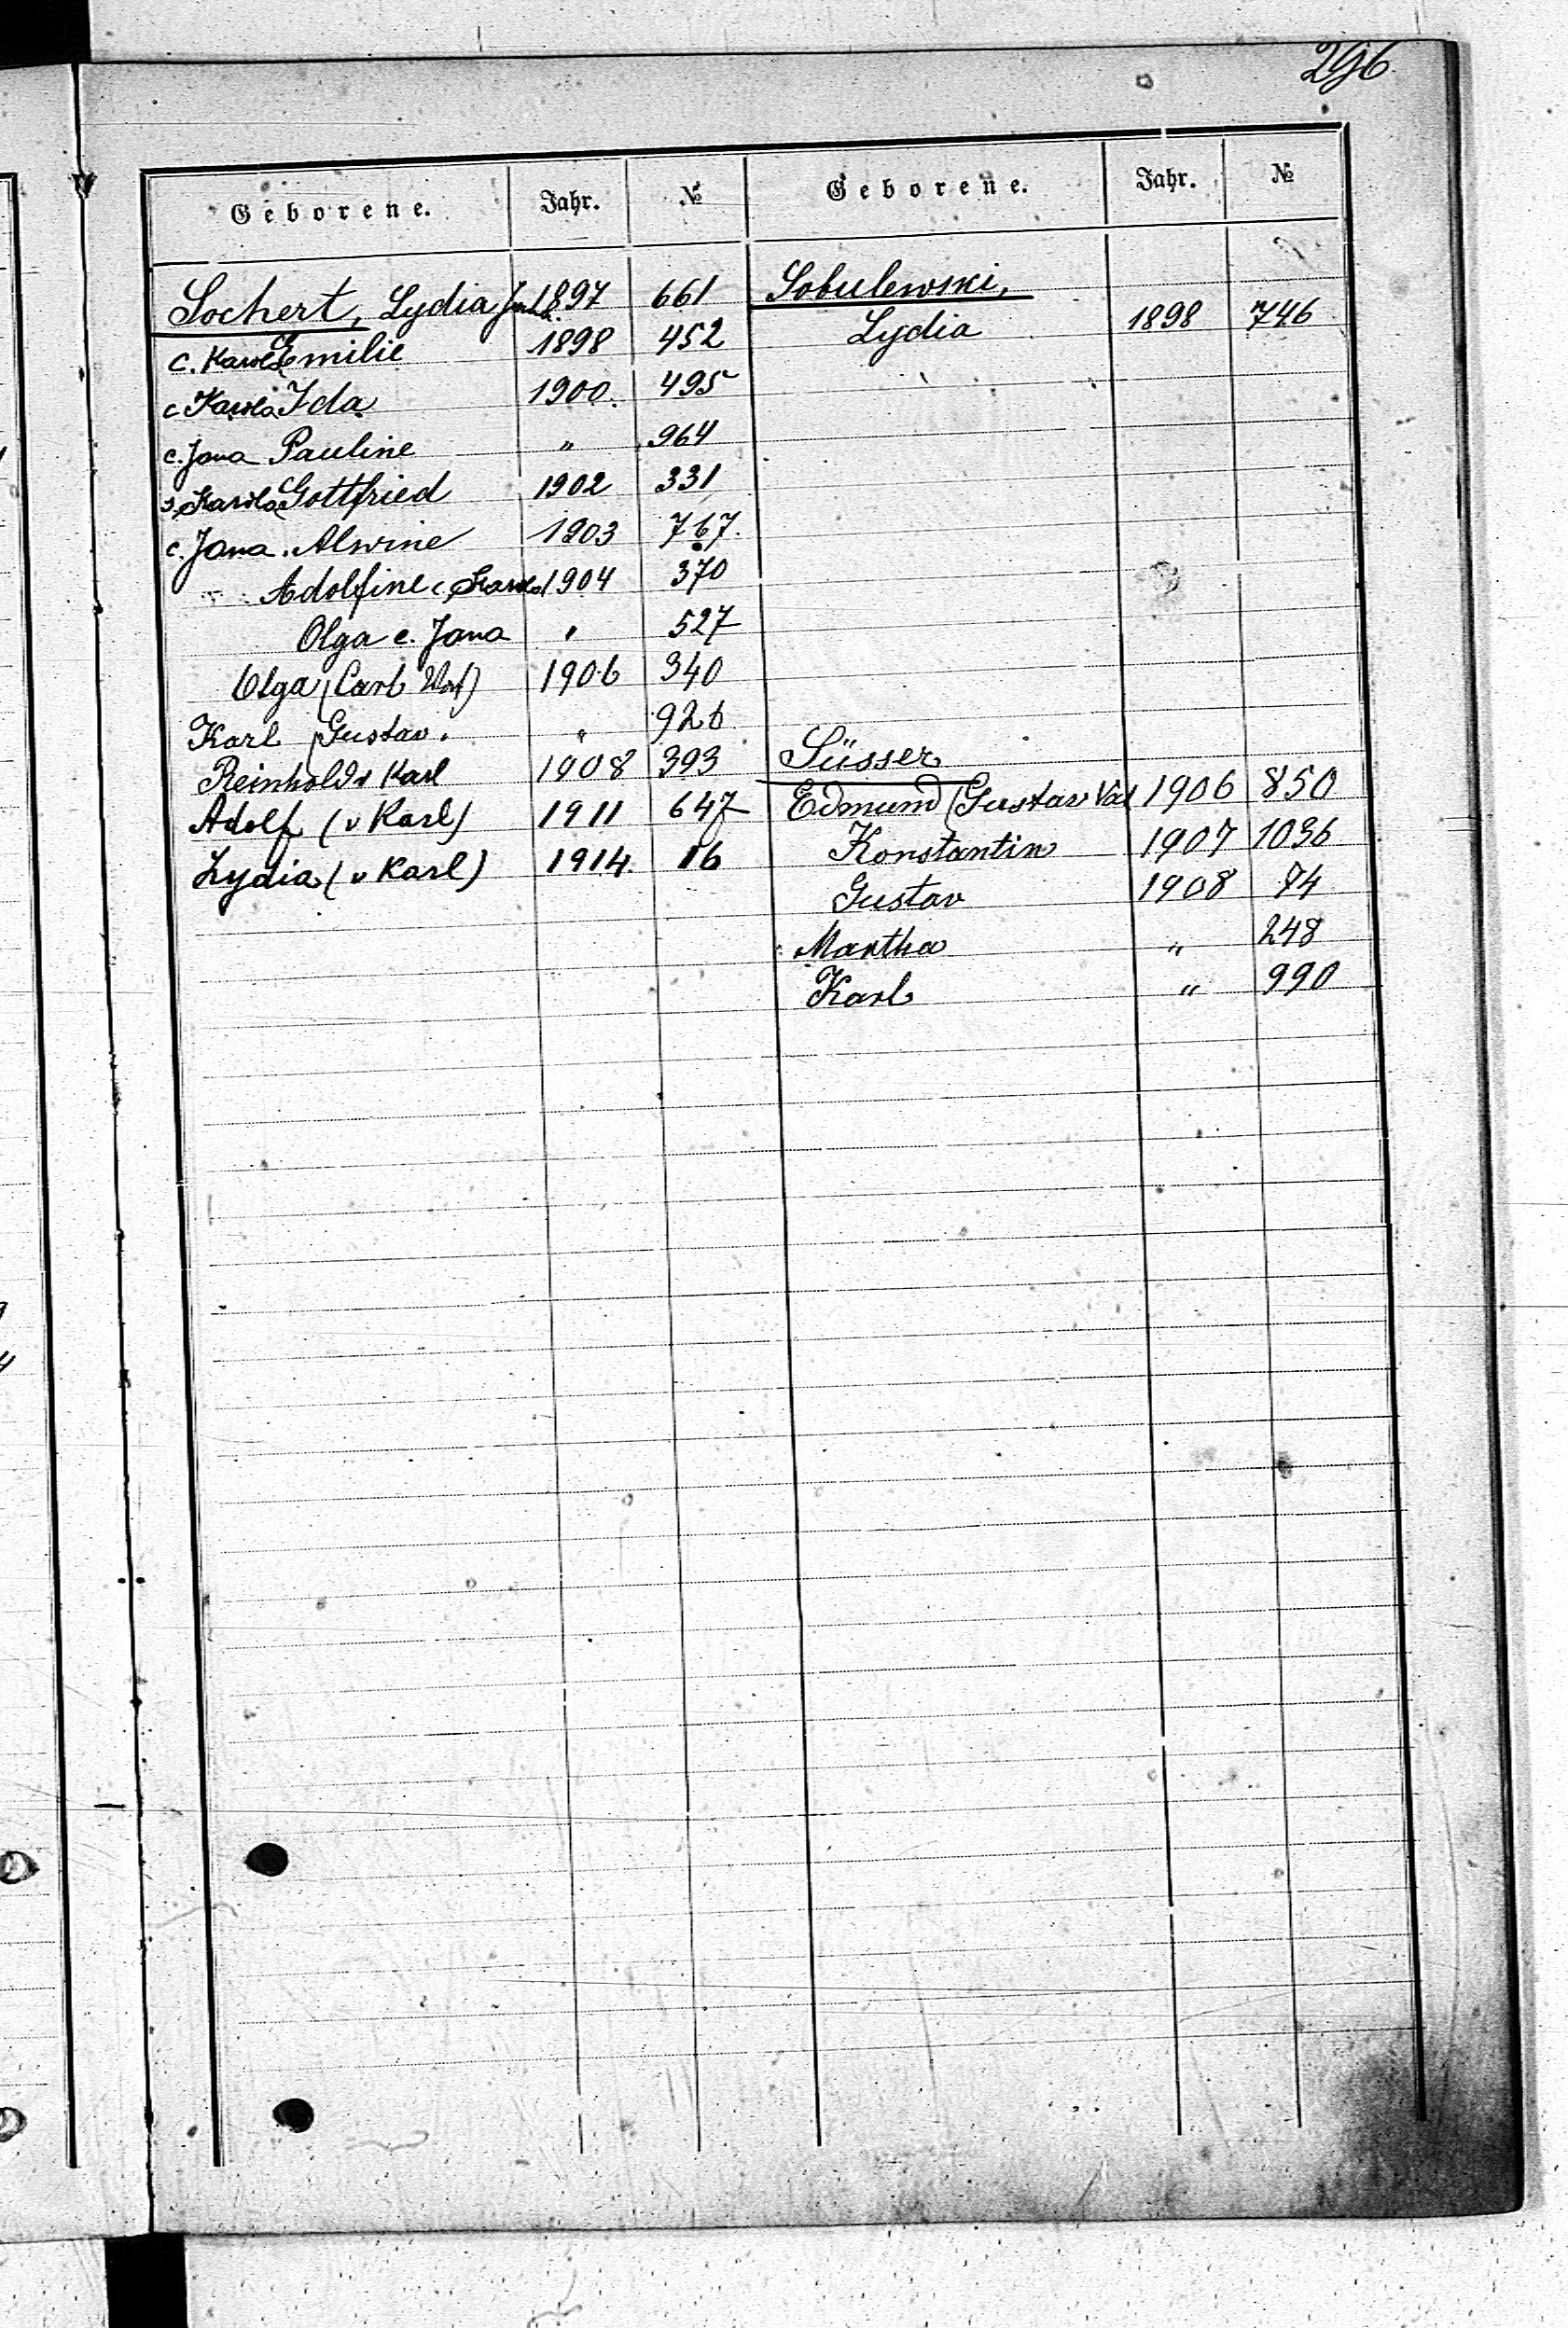 296
Geborene. Jahr. № Geborene. Jahr. №
Sochert, Lydia 1897 661
c. Karola Emilie 1898 452
c Karola Ida 1900. 495
c. Jana Pauline " 964
s. Karola Gottfried 1902 331
c. Jana. Alwine 1903 767.
Adolfine c. Karola 1904 370
Olga c. Jana " 527
Olga (Carl Vat) 1906 340
Karl Gustav. " 926
Reinhold v Karl 1908 393
Adolf (v Karl) 1911 647
Lydia (v Karl) 1914. 16
Sobulewski,
Lydia 1898 746
Süsser
Edmund (Gustav Vat 1906 850
Konstantin 1907 1036
Gustav 1908 74
Martha " 248
Karl " 990